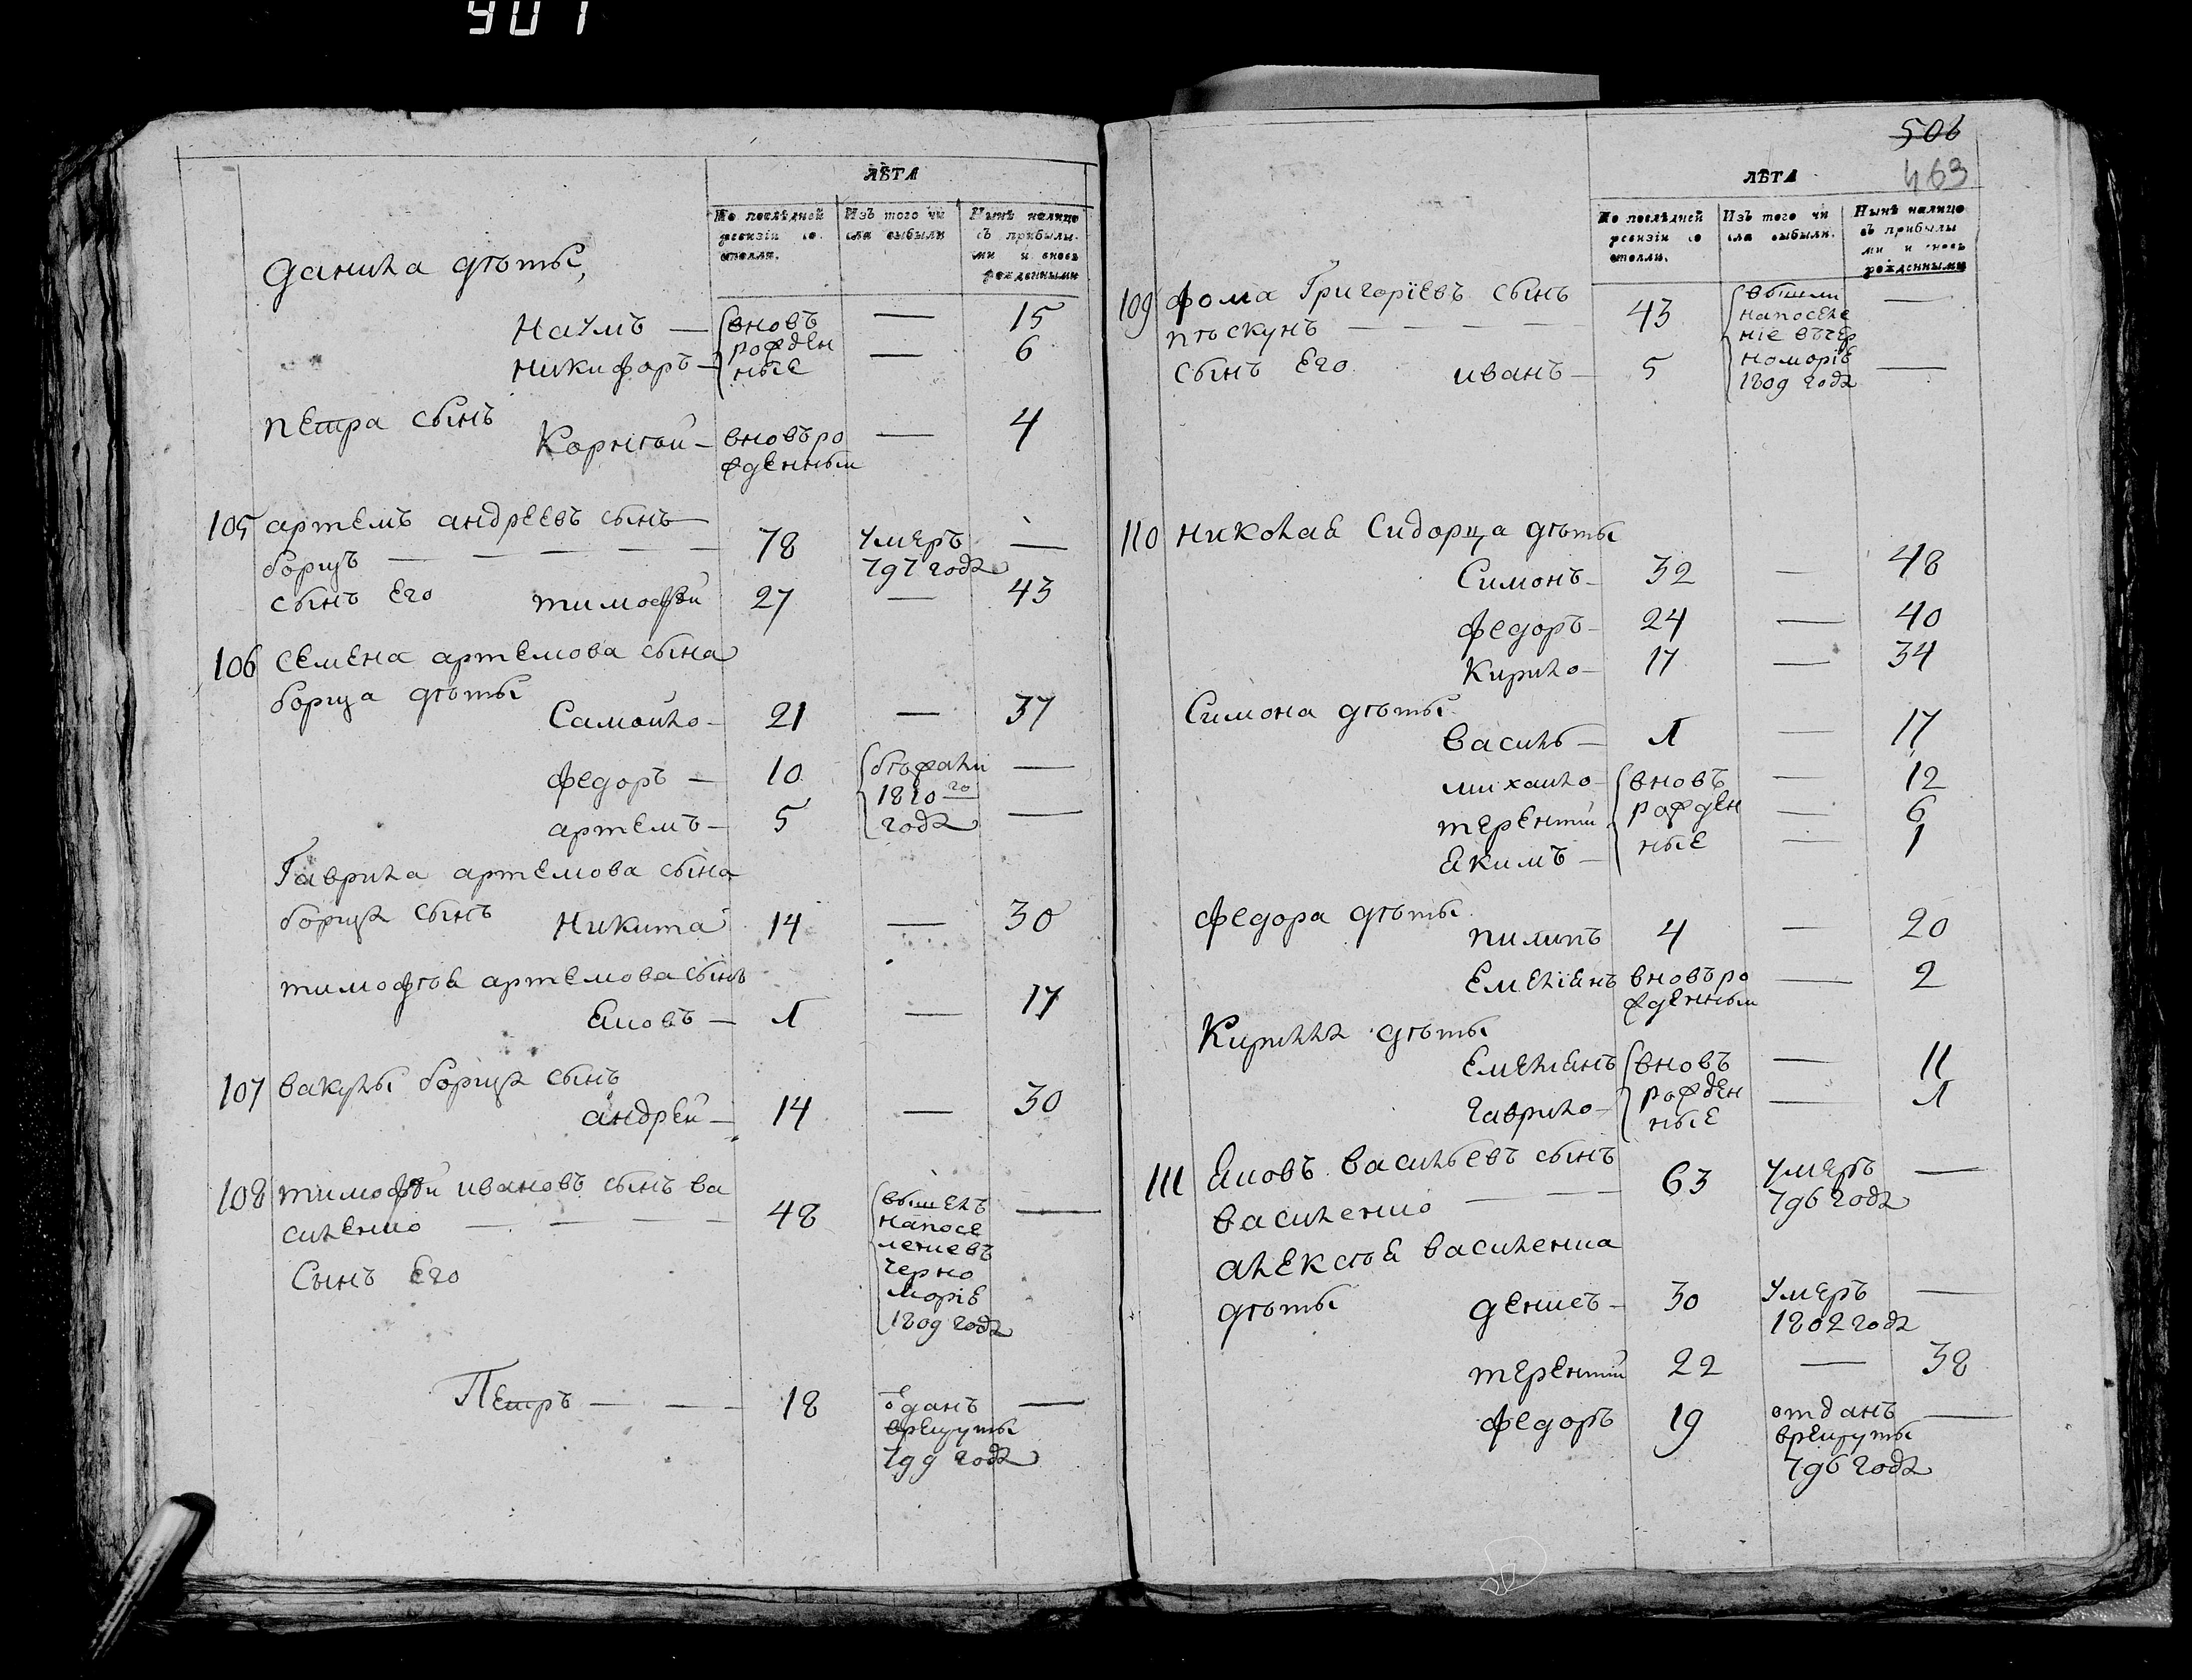 901
ЛѢТА
По послѣдней ревизіи состояли.
Изъ того числа выбыли
Нынѣ налицо съ прибылыми и вновь рожденными
Данила дѣты,
Наумъ — вновь рожденные — 15
Никифоръ — — 6
Петра сынъ
Корнѣй — вновъ рожденный — 4
105 Артемъ Андреевъ сынъ
борщъ — 78 умеръ 797 года —
сынъ его Тимофѣй 27 — 43
106 Семена Артемова сына
борща дѣты
Самойло — 21 — 37
Федоръ — 10 бѣжали 1810го года —
Артемъ — 5 —
Гаврила Артемова сына
борща сынъ Никита 14 — 30
Тимофѣя Артемова сынъ
Яковъ — Л — 17
107 Вакулы борща сынъ
Андрей — 14 — 30
108 Тимофѣй Ивановъ сынъ Ва
силенко — 48 вышелъ на поселение въ Черноморіе 1809 года —
Сынъ Его
Петръ — 18 отданъ в рекруты 799 года —
506
463
ЛѢТА
По послѣдней ревизіи состояли.
Изъ того числа выбыли.
Нынѣ налицо съ прибылыми и вновь рожденными
109 Фома Григоріевъ сынъ
пѣскунъ — 43 вышли на поселеніе въ Черноморіе 1809 года —
сынъ Его Иванъ — 5 —
110 Николая Сидорца дѣты
Симонъ — 32 — 48
Федоръ — 24 — 40
Кирило — 17 — 34
Симона дѣты
Василь — Л — 17
Михайло — вновъ рожденные — 12
Терентий — 6
Якимъ — — 1
Федора дѣты
Пилипъ 4 — 20
Емеліянъ вновъ рожденный — 2
Кирилла дѣты
Емеліянъ вновъ рожденные — 11
Гаврило — — Л
111 Яковъ Васильевъ сынъ
Василенко — 63 умеръ 796 года —
Алексѣя Василенка
дѣты Денисъ — 30 умеръ 1802 года —
Терентий 22 — 38
Федоръ 19 отданъ в рекруты 796 года —